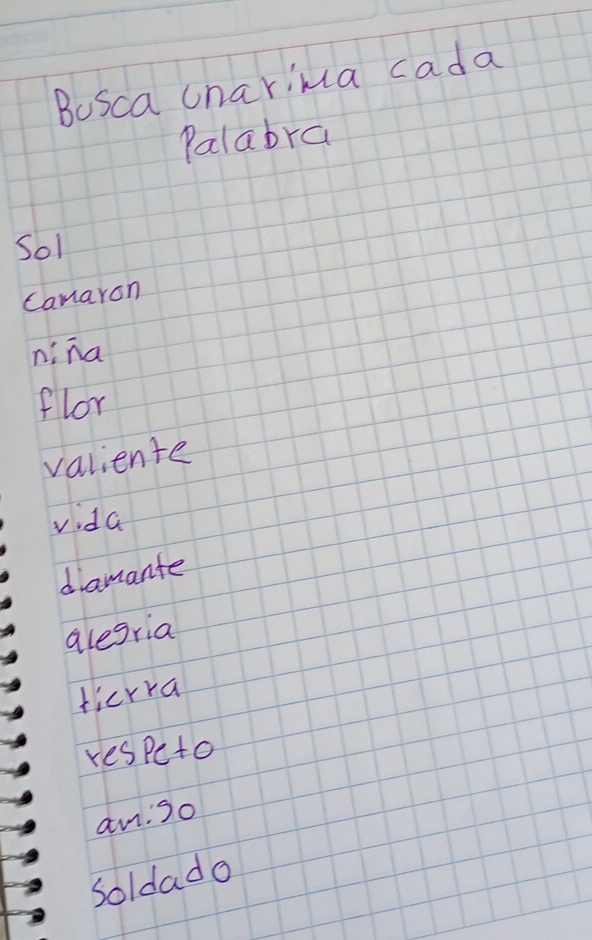 Busca una rima cada
Palabra
Sol
camaron
niña
flor
valiente
vida
diamante
alegria
tierra
respeto
amigo
soldado